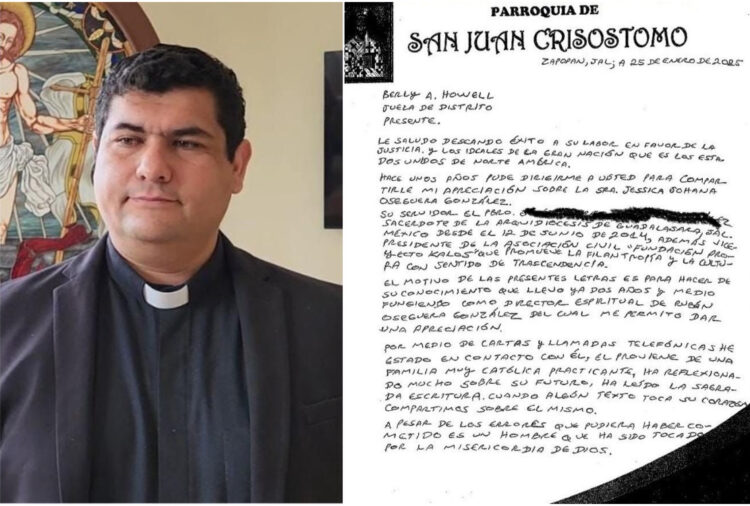 PARROQUIA DE
SAN JUAN CRISOSTOMO
ZAPOPAN, JAL; A 25 DE ENERO DE 2025
BERLY A. HOWELL
JUEZA DE DISTRITO
PRESENTE.
LE SALUDO DESEANDO ÉXITO A SU LABOR EN FAVOR DE LA
JUSTICIA. Y LOS IDEALES DE LA GRAN NACIÓN QUE ES LOS ESTA
DOS UNIDOS DE NORTE AMÉRICA.
HACE UNOS AÑOS PUDE DIRIGIRME A USTED PARA COMPAR
TIRLE MI APRECIACIÓN SOBRE LA SRA. JESSICA JOHANA
OSEGUERA GONZÁLEZ.
SU SERVIDOR EL PBRO.
SACERDOTE DE LA ARQUIDIÓCESIS DE GUADALAJARA, JAL.
MÉXICO DESDE EL 12 DE JUNIO DE 2014, ADEMÁS VICE-
PRESIDENTE DE LA ASOCIACIÓN CIVIL "FUNDACIÓN PRO-
YECTO KALOS" QUE PROMUEVE LA FILANTROPÍA Y LA CULTU-
RA CON SENTIDO DE TRASCENDENCIA.
EL MOTIVO DE LAS PRESENTES LETRAS ES PARA HACER DE
SU CONOCIMIENTO QUE LLEVO YA DOS AÑOS Y MEDIO
FUNGIENDO COMO DIRECTOR ESPIRITUAL DE RUBÉN
OSEGUERA GONZÁLEZ DEL CUAL ME PERMITO DAR
UNA APRECIACIÓN.
POR MEDIO DE CARTAS Y LLAMADAS TELEFÓNICAS HE
ESTADO EN CONTACTO CON ÉL, EL PROVIENE DE UNA
FAMILIA MUY CATÓLICA PRACTICANTE, HA REFLEXIONA-
DO MUCHO SOBRE SU FUTURO, HA LEÍDO LA SAGRA-
DA ESCRITURA. CUANDO ALGÚN TEXTO TOCA SU CORAZÓN
COMPARTIMOS SOBRE EL MISMO.
A PESAR DE LOS ERRORES QUE PUDIERA HABER CO-
METIDO ES UN HOMBRE QUE HA SIDO TOCADO
POR LA MISERICORDIA DE DIOS.